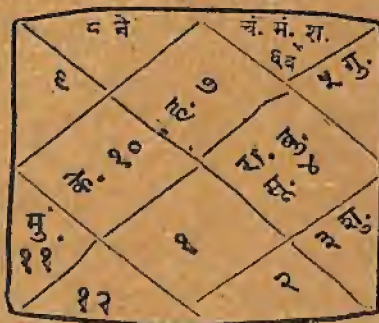 ८ ने
चं. मं. श.
६ व
५ गु.
९
ह. ७
के. १०
रा. बु. ४
सू.
मुं.
११
१
३ शु.
१२
२